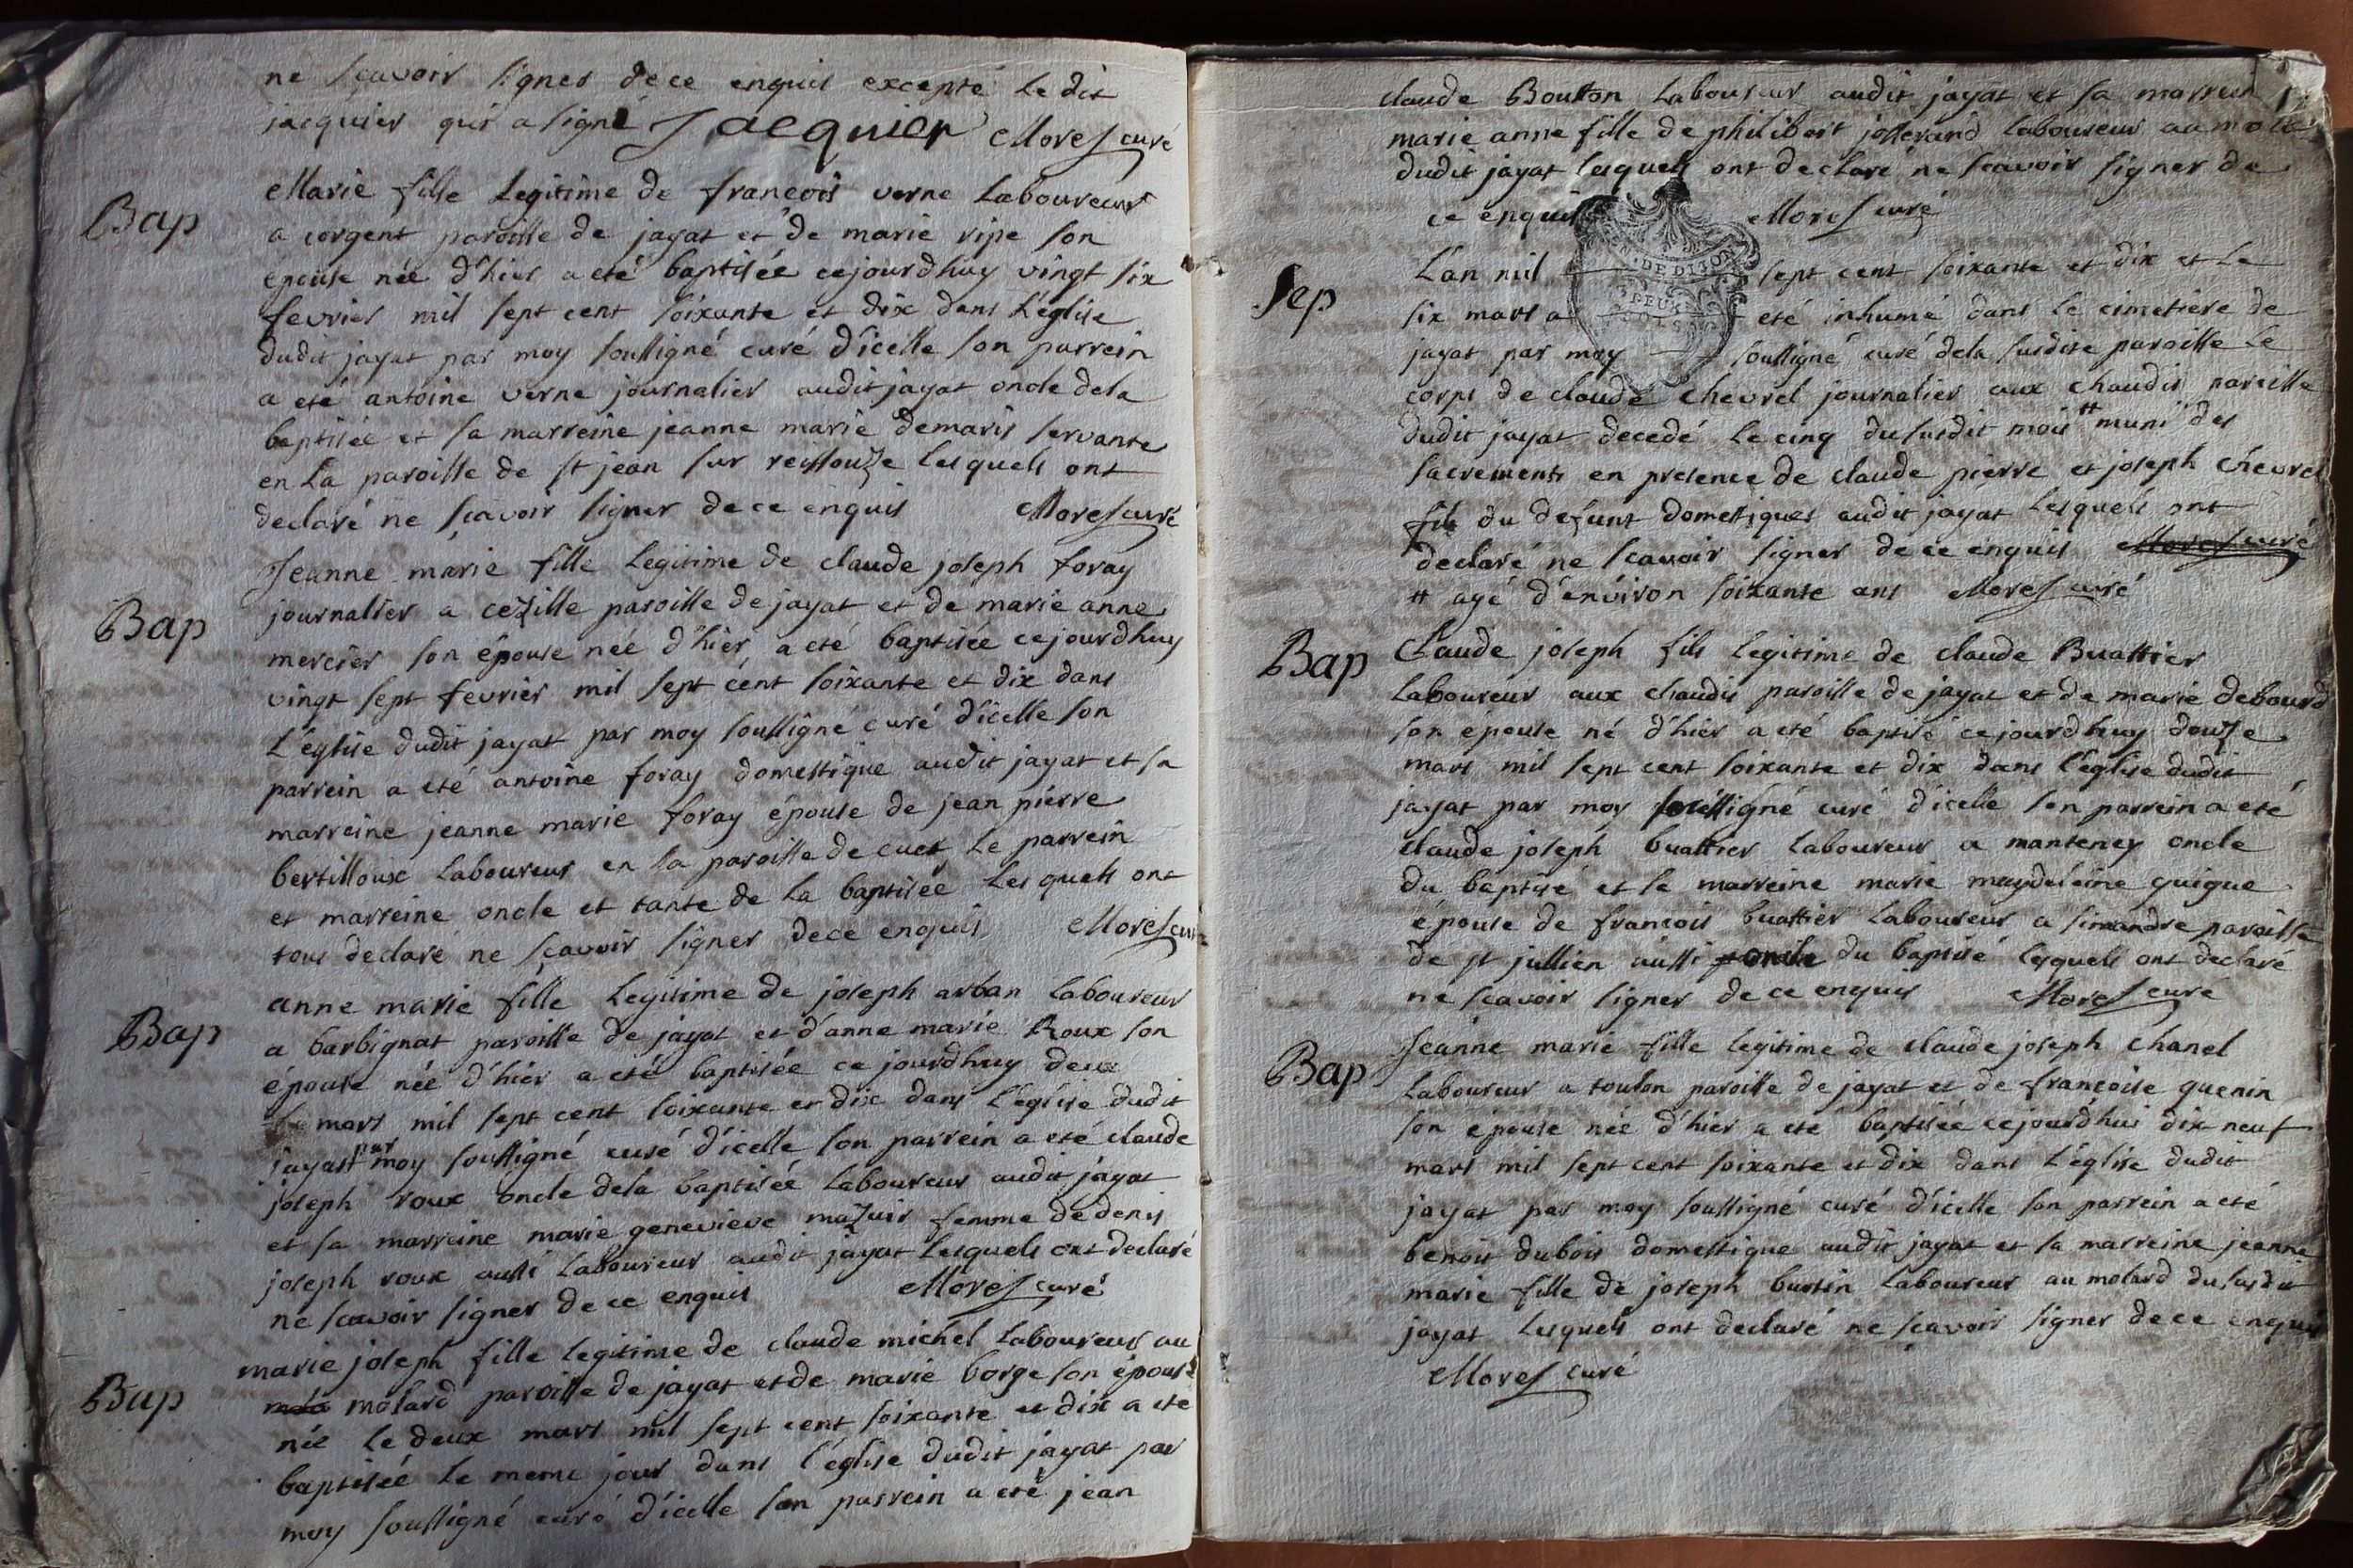 ne scavoir signer de ce enquis excepté le dit
jacquier qui a signé Jacquier Morel curé
Bap
Marie fille legitime de francois verne laboureur
a corgent paroisse de jayat et de marie ripe son
epouse née d'hier a eté baptisée cejourdhuy vingt six
fevrier mil sept cent soixante et dix dans l'église
dudit jayat par moy soussigné curé d'icelle son parrein
a eté antoine verne journalier audit jayat oncle dela
baptisée et sa marreine jeanne marie demaris servante
en la paroisse de st jean sur reyssouze lesquels ont
declaré ne scavoir signer de ce enquis Morel curé
Bap
Jeanne marie fille legitime de claude joseph foray
journalier a cezille paroisse de jayat et de marie anne
mercier son épouse née d'hier a eté baptisée cejourdhuy
vingt sept fevrier mil sept cent soixante et dix dans
l'église dudit jayat par moy soussigné curé d'icelle son
parrein a eté antoine foray domestique audit jayat et sa
marreine jeanne marie foray épouse de jean pierre
bertilloux laboureur en la paroisse de cuet le parrein
et marreine oncle et tante de la baptisée lesquels ont
tous declaré ne scavoir signer de ce enquis Morel curé
Bap
anne marie fille legitime de joseph arban laboureur
a barbignat paroisse de jayat et d'anne marie Roux son
épouse née d'hier a eté baptisée ce jourdhuy deux
mars mil sept cent soixante et dix dans l'église dudit
jayat par moy soussigné curé d'icelle son parrein a eté claude
joseph roux oncle dela baptisée laboureur audit jayat
et sa marreine marie genevieve mazuir femme de denis
joseph roux aussi laboureur audit jayat lesquels ont declaré
ne scavoir signer de ce enquis Morel curé
Bap
marie joseph fille legitime de claude michel laboureur au
molard paroisse de jayat et de marie borge son épouse
née le deux mars mil sept cent soixante et dix a eté
baptisée le meme jour dans l'église dudit jayat par
moy soussigné curé d'icelle son parrein a eté jean
claude Boutton laboureur audit jayat et sa marreine
marie anne fille de philibert josserand laboureur au
dudit jayat lesquels ont declaré ne scavoir signer de
ce enquis Morel curé
DE DIJON
DEUX
SOLS
Sep
L'an mil sept cent soixante et dix et le
six mars a eté inhumé dans le cimetière de
jayat par moy soussigné curé dela susdite paroisse le
corps de claude chevrel journalier aux chaudis paroisse
dudit jayat decedé le cinq dususdit mois # muni des
sacrements en presence de claude pierre et joseph chevrel
fils du defunt domestiques audit jayat lesquels ont
declaré ne scavoir signer de ce enquis Morel curé
# agé d'environ soixante ans Morel curé
Bap
Claude joseph fils legitime de claude Buattier
laboureur aux chaudis paroisse de jayat et de marie debourd
son épouse né d'hier a eté baptisé cejourdhuy douze
mars mil sept cent soixante et dix dans l'église dudit
jayat par moy soussigné curé d'icelle son parrein a eté
claude joseph buattier laboureur a mantenay oncle
du baptisé et la marreine marie magdeleine guigue
épouse de francois buattier laboureur a simandre paroisse
de st jullien aussi oncle du baptisé lesquels ont declaré
ne scavoir signer de ce enquis Morel curé
Bap
Jeanne marie fille legitime de claude joseph chanel
laboureur a toulon paroisse de jayat et de francoise guenin
son épouse née d'hier a eté baptisée cejourdhui dix neuf
mars mil sept cent soixante et dix dans l'église dudit
jayat par moy soussigné curé d'icelle son parrein a eté
benoit dubois domestique audit jayat et sa marreine jeanne
marie fille de joseph burtin laboureur au molard du susdit
jayat lesquels ont declaré ne scavoir signer de ce enquis
Morel curé